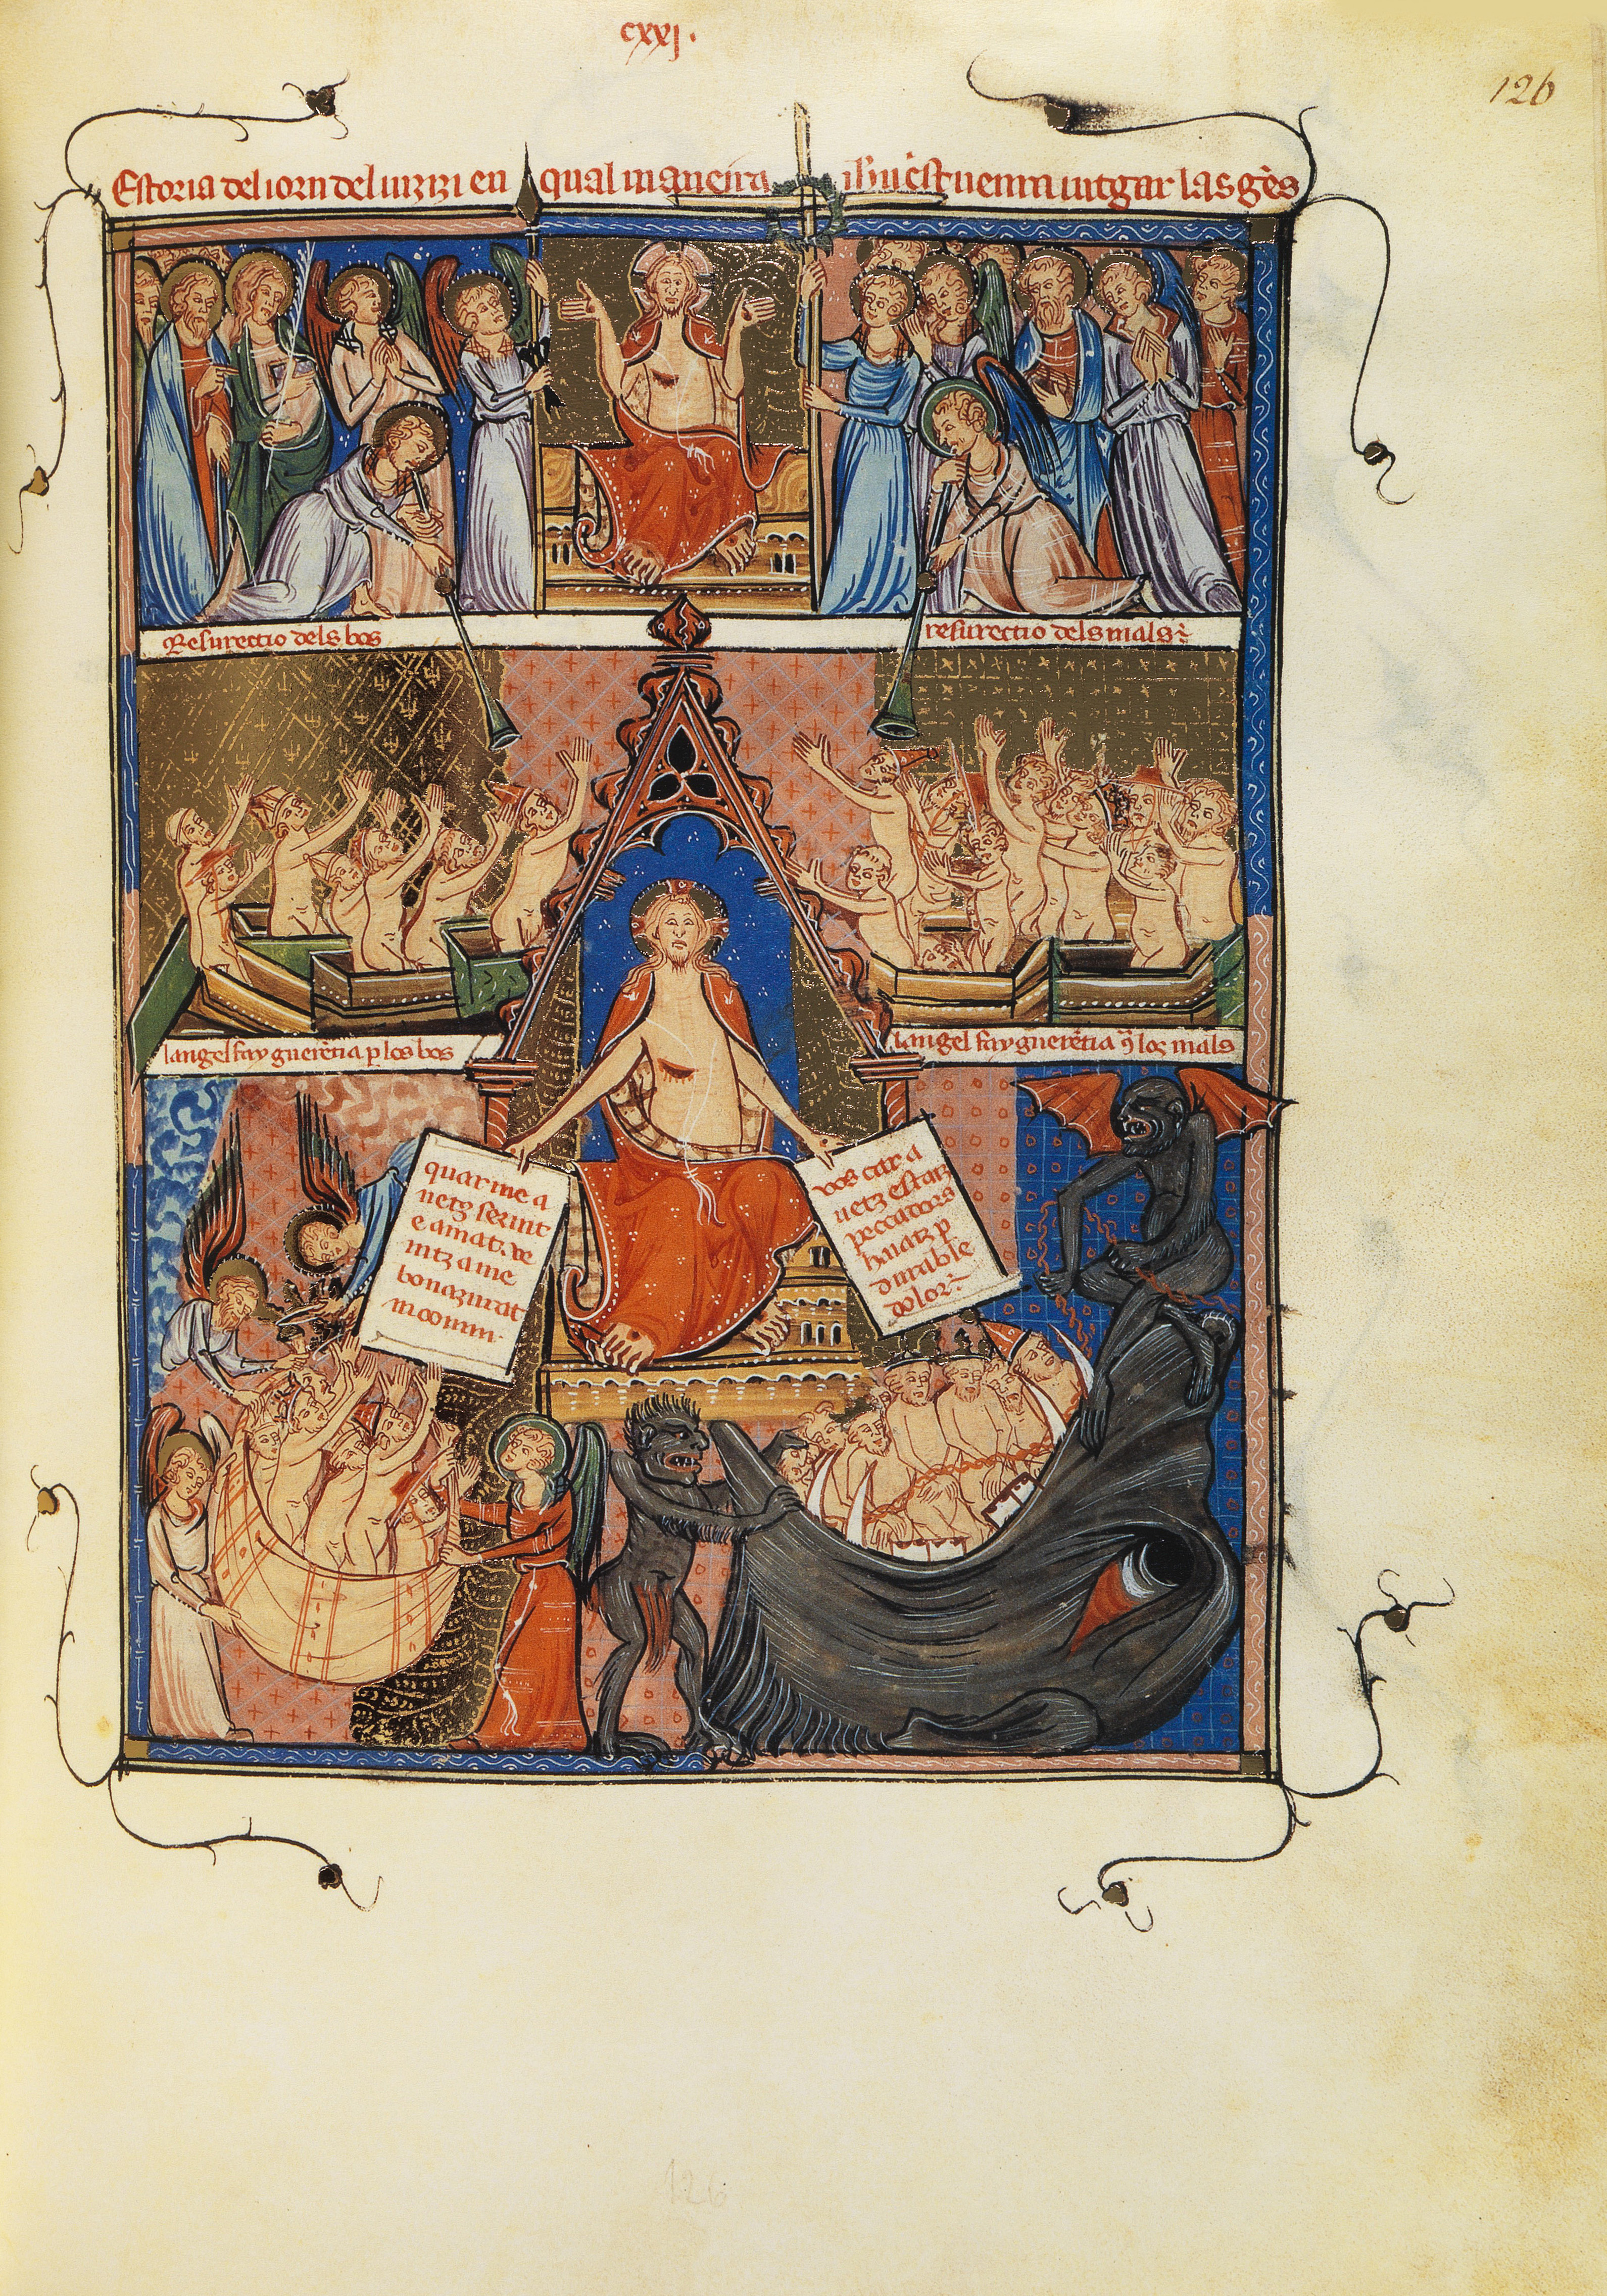 cxxj.
126
Estoria del iorn del iuzizi en qual maneira ihu crist uenra iutgar las gẽs
Resurectio dels bos
resurectio dels mals
langel fay guerẽtia p los bos
langel fay guerẽtia q̃ los mals
quar me a
uetz seruit
e amat. ve
nitz a me
bonazurat
vos car a
uetz estatz
peccadors
anatz p
durable
dolor
126